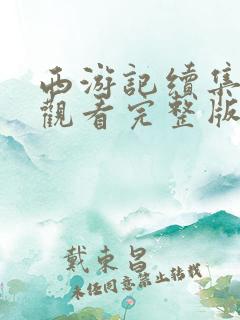 西游記續集
觀看完整版
戴東昌
未任同意禁止轉載